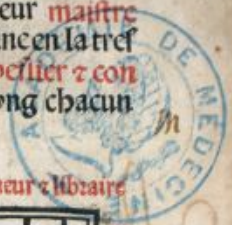 eur maistre
ance en la tres
pellier ⁊ con
ong chacun
ueur ⁊ libraire
DE MÉDECIN